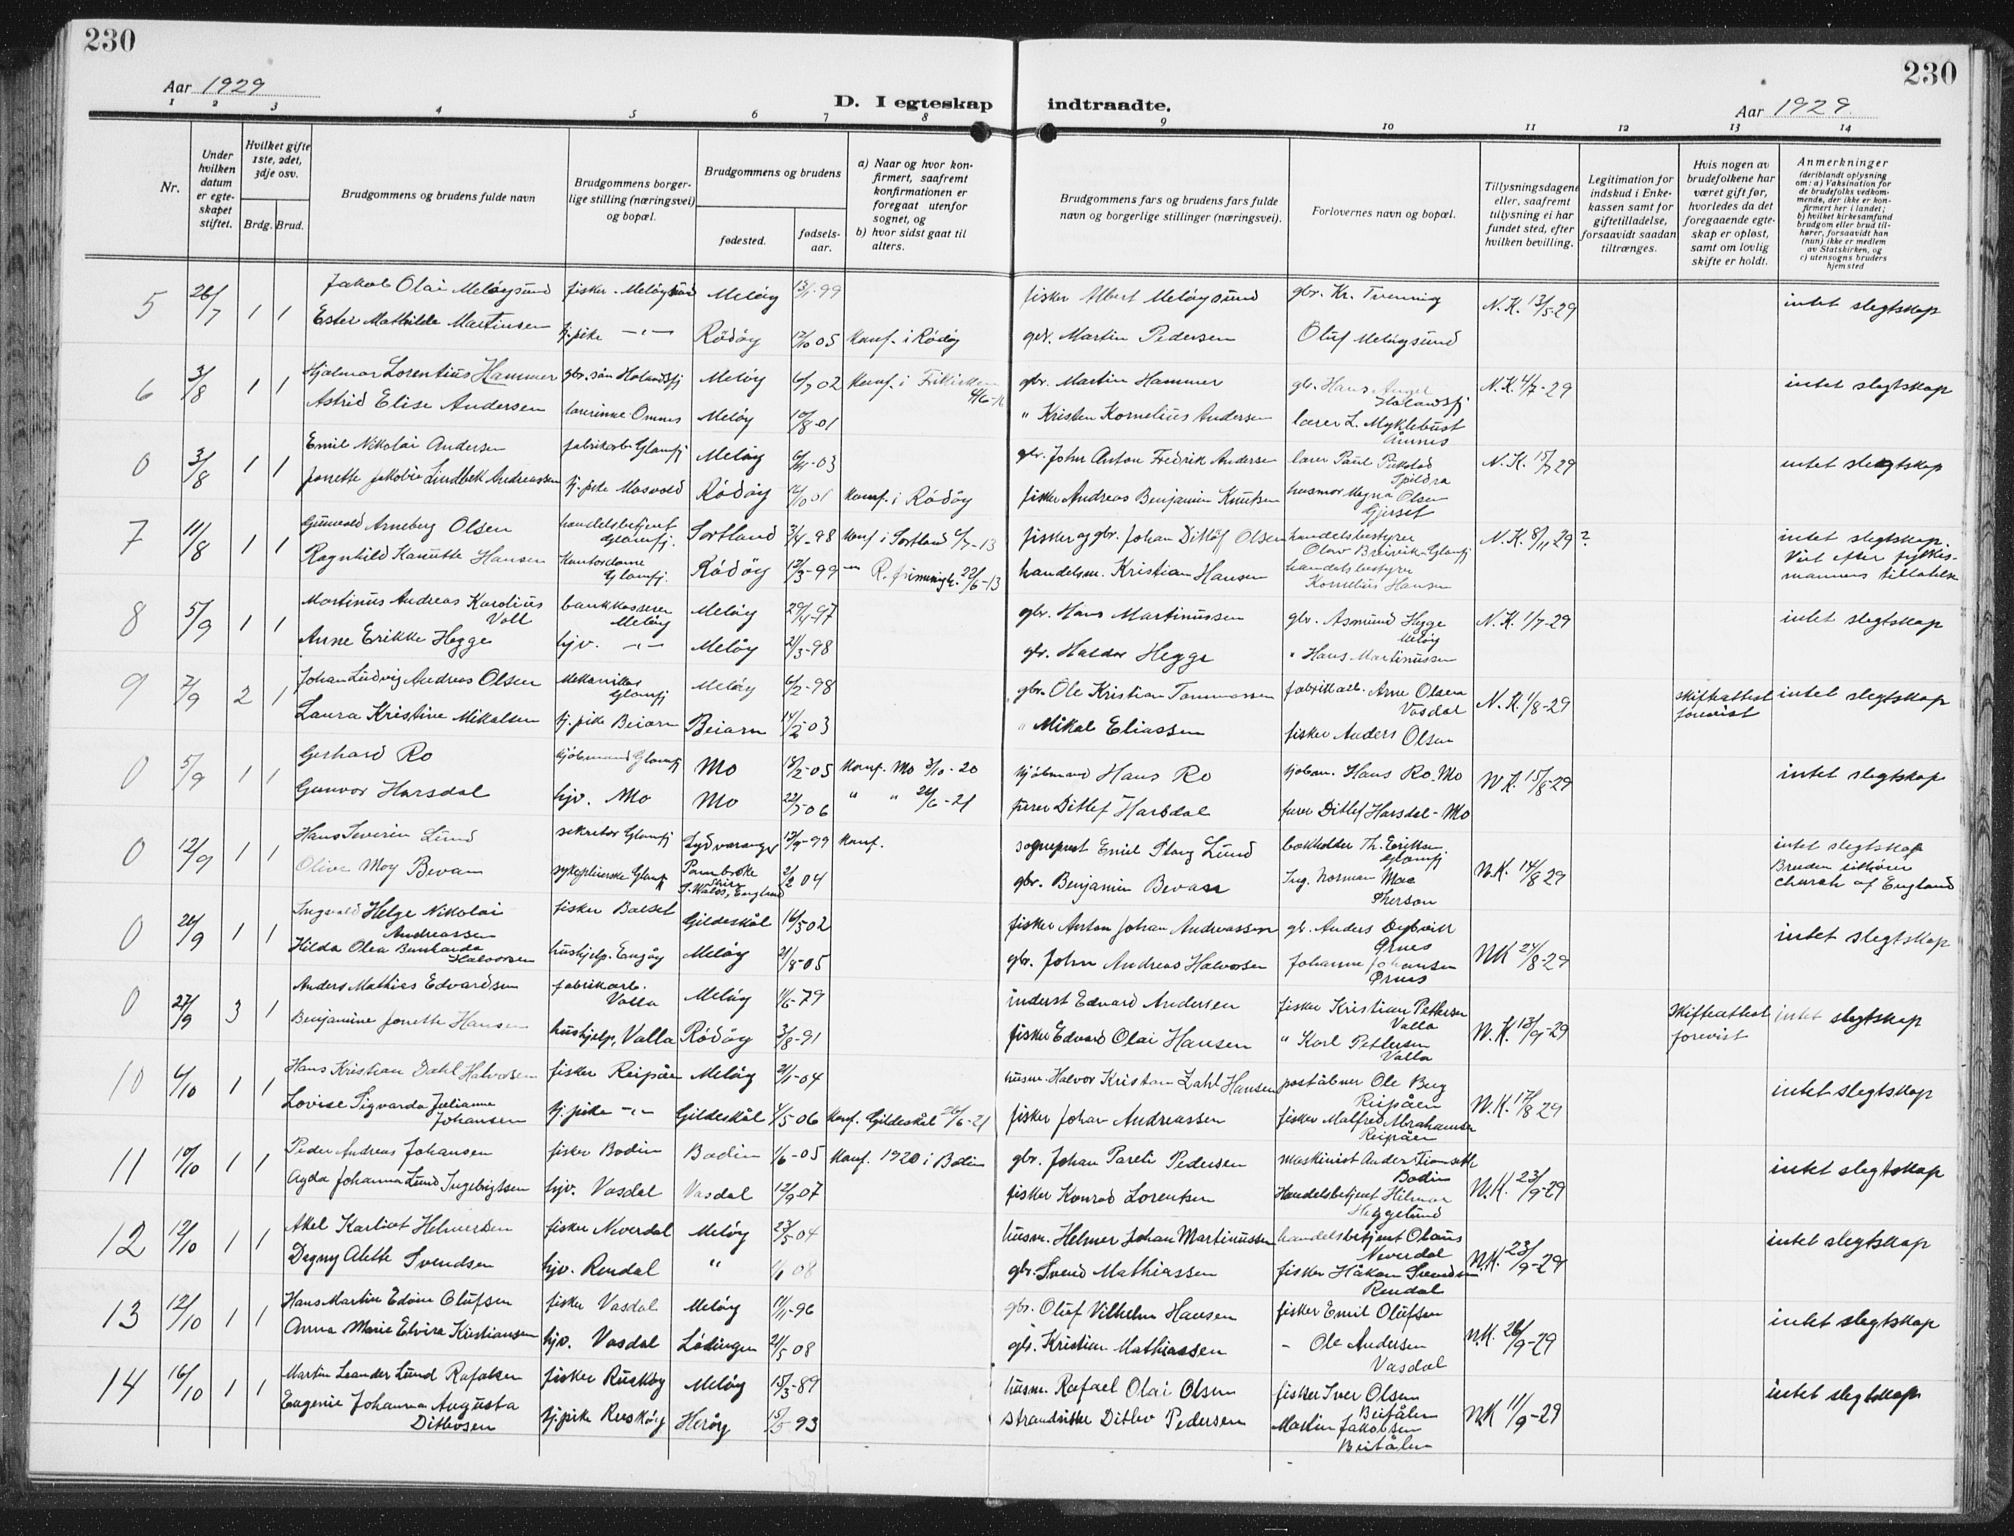 230
230
Aar 1929
D. I egteskap indtraadte.
Aar 1929
1 2 3 4 5 6 7 8 9 10 11 12 13 14
Nr.
Under hvilken datum er egteskapet stiftet.
Hvilket gifte 1ste, 2det, 3dje osv.
Brdg. Brud.
Brudgommens og brudens fulde navn
Brudgommens borgerlige stilling (næringsvei) og bopæl.
Brudgommens og brudens
fødested.
fødselsaar.
a) Naar og hvor konfirmert, saafremt konfirmationen er foregaat utenfor sognet, og
b) hvor sidst gaat til alters.
Brudgommens fars og brudens fars fulde navn og borgerlige stillinger (næringsvei).
Forlovernes navn og bopæl.
Tillysningsdagene eller, saafremt tillysning ei har fundet sted, efter hvilken bevilling.
Legitimation for indskud i Enkekassen samt for giftetilladelse, forsaavidt saadan tiltrænges.
Hvis nogen av brudefolkene har været gift før, hvorledes da det foregaaende egteskap er opløst, samt om lovlig skifte er holdt.
Anmerkninger (deriblandt oplysning om: a) Vaksination for de brudefolks vedkommende, der ikke er konfirmert her i landet; b) hvilket kirkesamfund brudgom eller brud tilhører, forsaavidt han (hun) ikke er medlem av Statskirken, og c) utensogns bruders hjemsted
5 26/7 1 1 Jakob Olai Meløysund fisker Meløysund Meløy 13/1-99 fisker Albert Meløysund gbr. Kr. Tvenning N.K. 13/5-29 intet slegtskap
Ester Mathilde Martinsen tj.pike -"- Rødøy 17/10 05 Konf. i Rødøy gbr. Martin Pedersen Oluf Meløysund
6 3/8 1 1 Hjalmar Lorentius Hammer gbr. søn Holandsfj Meløy 6/7 02 Konf. i Frikirken gbr. Martin Hammer gbr. Hans Holandsfj N.K. 4/7-29 intet slegtskap
Astrid Elise Andersen lærerinne Ømnes Meløy 10/8-01 " Kristen Kornelius Andersen lærer L. Myklebust Åmnes
0 3/8 1 1 Emil Nikolai Andersen fabrikarb. Glomfj Meløy 6/11-03 gbr. John Anton Fredrik Andersen lærer Paul Spildra N.K. 15/7 29 intet slegtskap
Jonette Jakobie Lindbek Andreassen tj. pike Masvold Rødøy 01 Konf. i Rødøy fisker Andreas Benjamin Knutsen husmor Magna Olsen Gjerset
7 11/8 1 1 Gunvald Arneberg Olsen handelsbetjent Glomfj. Sortland 3/4-98 Konf i Sortland 6/7-13 fisker og gbr. Johan Ditlef Olsen handelsbestyrer Olav Breivik Glomfj N.K. 8/11 29? intet slegtskap. Viet efter fylkesmannens tillatelse
Ragnhild Kanutte Hansen Kontordame Glomfj. Rødøy 12/3-99 -"- R. 22/6-13 handelsm. Kristian Hansen handelsbestyrer Kornelius Hansen
8 5/9 1 1 Martinus Andreas Karolius Voll bankkasserer Meløy Meløy 29/4-97 gbr. Hans Martinussen gbr. Asmund Hegge Meløy N.K. 1/7-29 intet slegtskap
Anne Erikke Hegge hjv. -"- Meløy 21/3-98 gbr. Haldor Hegge " Hans Martinussen
9 7/9 2 1 Johan Ludvig Andreas Olsen Mekanikker Glomfj Meløy 6/2-98 gbr. Ole Kristian Tommassen fabrikkarb. Arne Olsen Vasdal N.K. 1/8-29 skifteattest forevist intet slegtskap
Laura Kristine Mikalsen tj. pike Beiarn Beiarn 14/2-03 " Mikal Eliassen fisker Anders Olsen
0 5/9 1 1 Gerhard Ro kjøbmand Glomfj Mo 18/2-05 Konf. Mo 3/10-20 kjøbmand Hans Ro kjøbm. Hans Ro. Mo N.K. 15/8-29 intet slegtskap
Gunvor Harsdal hjv. Mo Mo 22/5-06 " " 26/6-21 furer Ditlef Harsdal furer Ditlef Harsdal - Mo
0 12/9 1 1 Hans Severin Lund sekretær Glomfj Sydvaranger 17/9-99 Konf. sogneprest Emil Stang Lund bokholder Th. Eriksen. Glomfj N.K. 14/8 29 intet slegtskap
Olive May Bevan sykepleierske Glomfj Pembroke shire S. Wales, England 2/2 04 gbr. Benjamin Bevan Ing. Norman Mac Pherson Bruden tilhører Church of England
0 26/9 1 1 Ingvald Helge Nikolai Andreassen fisker Bolset Gildeskål 16/5 02 fisker Anton Johan Andreassen gbr. Anders Ørnes NK 24/8-29 intet slegtskap
Hilda Olea Halvorsen hushjelp. Engøy Meløy 21/8-05 gbr. John Andreas Halvorsen Johanne Johansen Ørnes
0 27/9 3 1 Anders Mathias Edvardsen fabrikarb. Valla Meløy 1/6-79 inderst Edvard Andersen fisker Kristian Pettersen Valla N.K. 13/9-29 Skifteattest forevist intet slegtskap
Benjamine Jonette Hansen hushjelp, Valla Rødøy 3/8-91 fisker Edvard Olai Hansen " Karl Pettersen Valla
10 6/10 1 1 Hans Kristian Dahl Halvorsen fisker Reipåen Meløy 21/1-04 husm. Halvor Kristian Zahl Hansen poståbner Ole Berg Reipåen N.K. 17/8 29 intet slegtskap
Lovise Sigvarda Julianne Johansen tj.pike -"- Gildeskål 1/5 06 Konf. Gildeskål 26/6-21 fisker Johan Andreassen fisker Malfred Abrahamsen Reipåen
11 10/10 1 1 Peder Andreas Johansen fisker Bodin Bodin 1/6-05 Konf. 1920 i Bodin gbr. Johan Pareli Pedersen maskinist Ander Bodin N.K. 23/9-29 intet slegtskap
Agda Johanna Lund Ingebrigtsen hjv. Vasdal Vasdal 12/9 07 fisker Konrad Lorentsen Handelsbetjent Hilmar Heggelund
12 12/10 1 1 Aksel Karlivot Helmersen fisker Neverdal Meløy 23/5 04 husm. Helmer Johan Martinussen handelsbetjent Olaus Neverdal N.K. 23/9-29 intet slegtskap
Dagny Alette Svendsen hjv. Rendal " 08 gbr. Svend Mathiassen fisker Håkon Svendsen Rendal
13 12/10 1 1 Hans Martin Edvin Olufsen fisker Vasdal Meløy 9/11-96 gbr. Oluf Vilhelm Hansen fisker Emil Olufsen N.K. 26/9-29 intet slegtskap
Anna Marie Elvira Kristiansen hjv. Vasdal Lødingen 21/5 08 gbr. Kristian Mathiassen - Ole Andersen Vasdal
14 16/10 1 1 Martin Leander Lund Rafalsen fisker Ruskøy Meløy 15/3-89 husm. Rafael Olai Olsen fisker Iver Olsen N.K. 11/9-29 intet slegtskap
Eugenie Johanna Augusta Ditlevsen tj.pike Ruskøy Herøy 15/5 93 strandsitter Ditlev Pedersen Martin Jakobsen